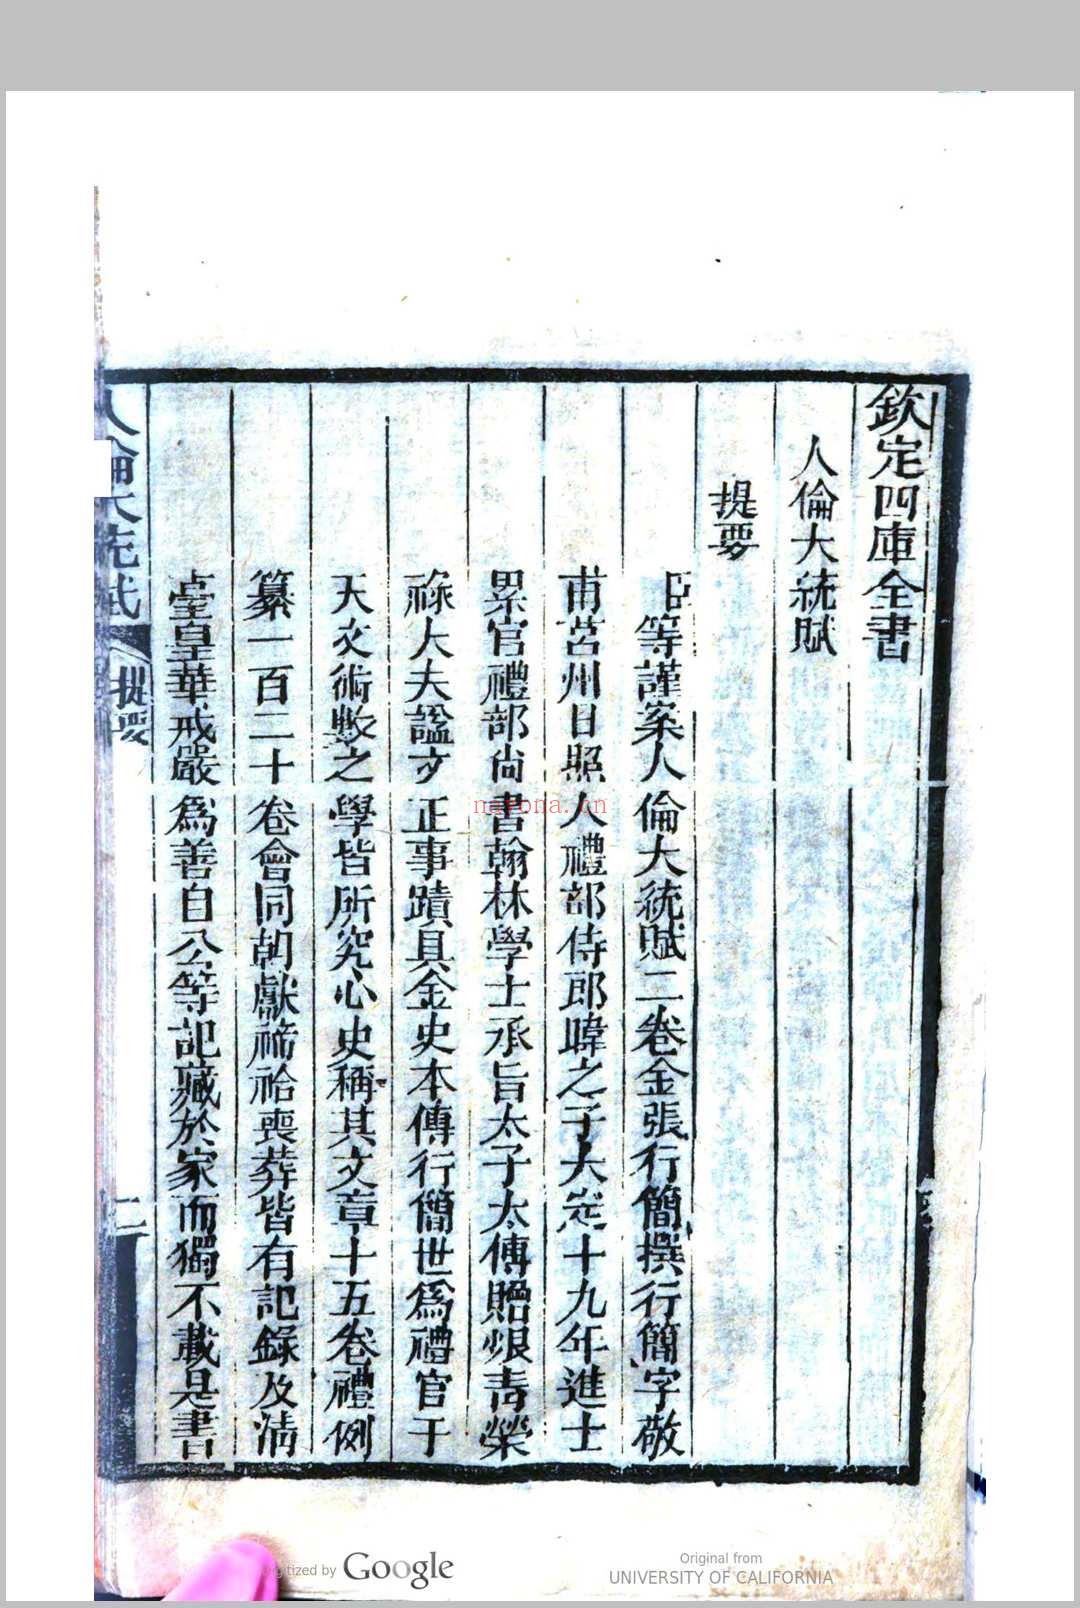 欽定四庫全書
人倫大統賦
提要
臣等謹案人倫大統賦二卷金張行簡撰行簡字敬
甫莒州日照人禮部侍郎暐之子大定十九年進士
累官禮部尚書翰林學士承旨太子太傅贈銀青榮
祿大夫諡文正事蹟具金史本傳行簡世爲禮官于
天文術數之學皆所究心史稱其文章十五卷禮例
纂一百二十卷會同朝獻禘祫喪葬皆有記錄及清
臺皇華戒嚴爲善自公等記藏於家而獨不載是書
人倫大統賦
提要
一
nayona.cn
Digitized by Google
Original from
UNIVERSITY OF CALIFORNIA